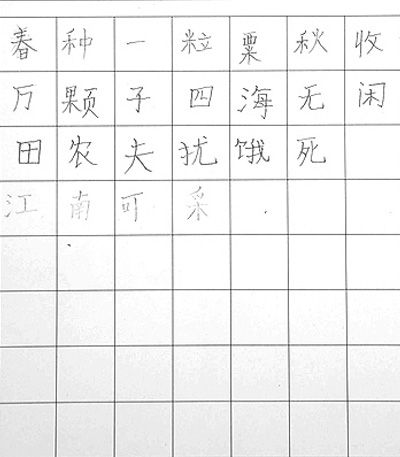 春种一粒粟秋收
万颗子四海无闲
田农夫扰饿死
江南可采